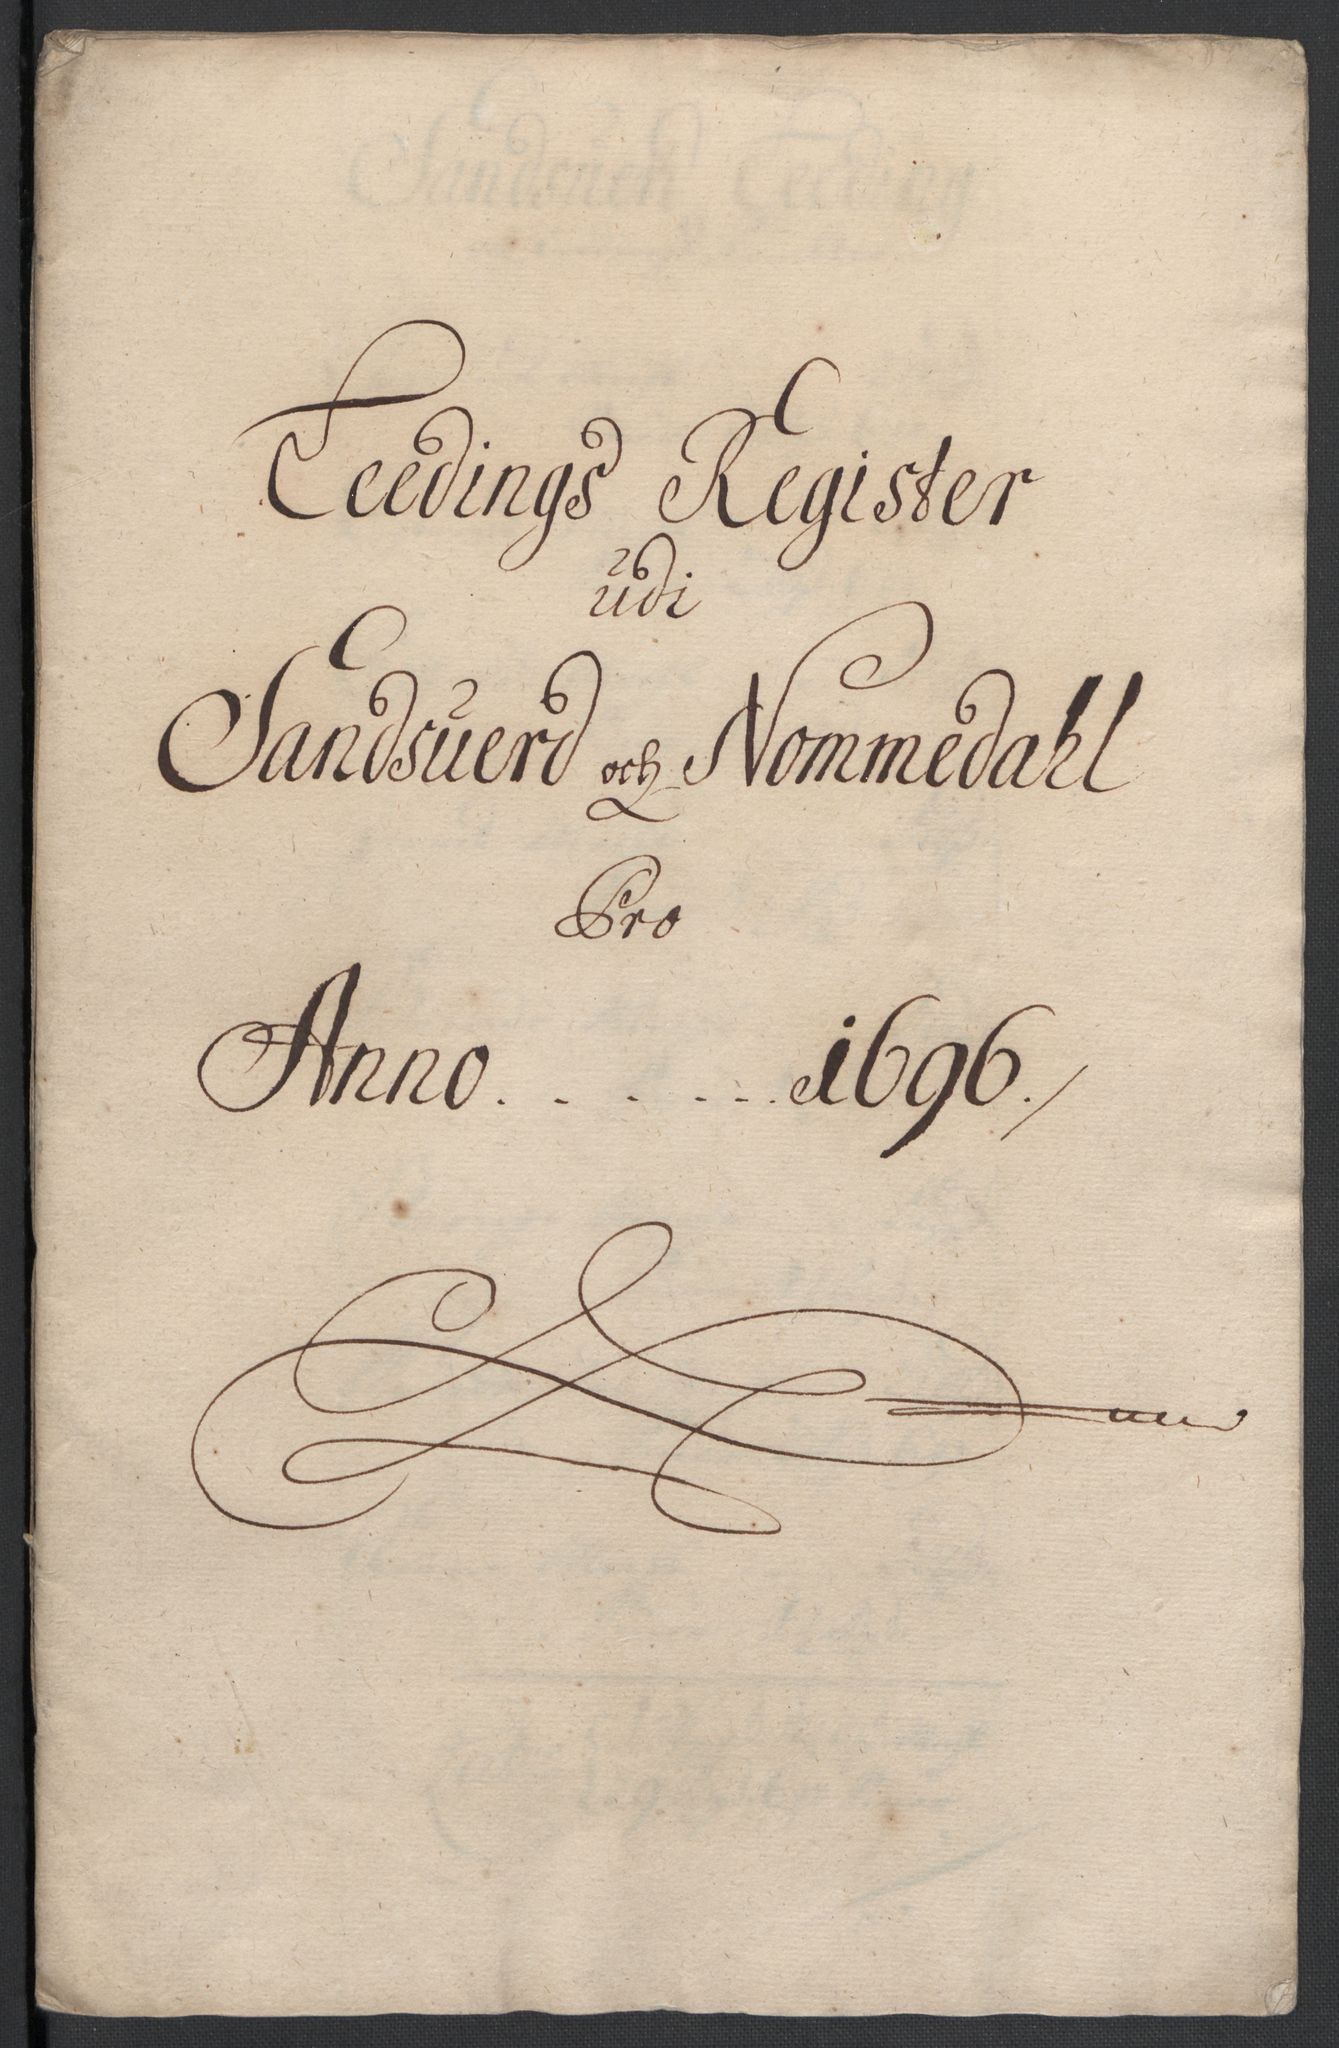 Teedings Register
udi
Sandsuerd och Nommedahl
Pro
Anno. . . . . . . . 1696./